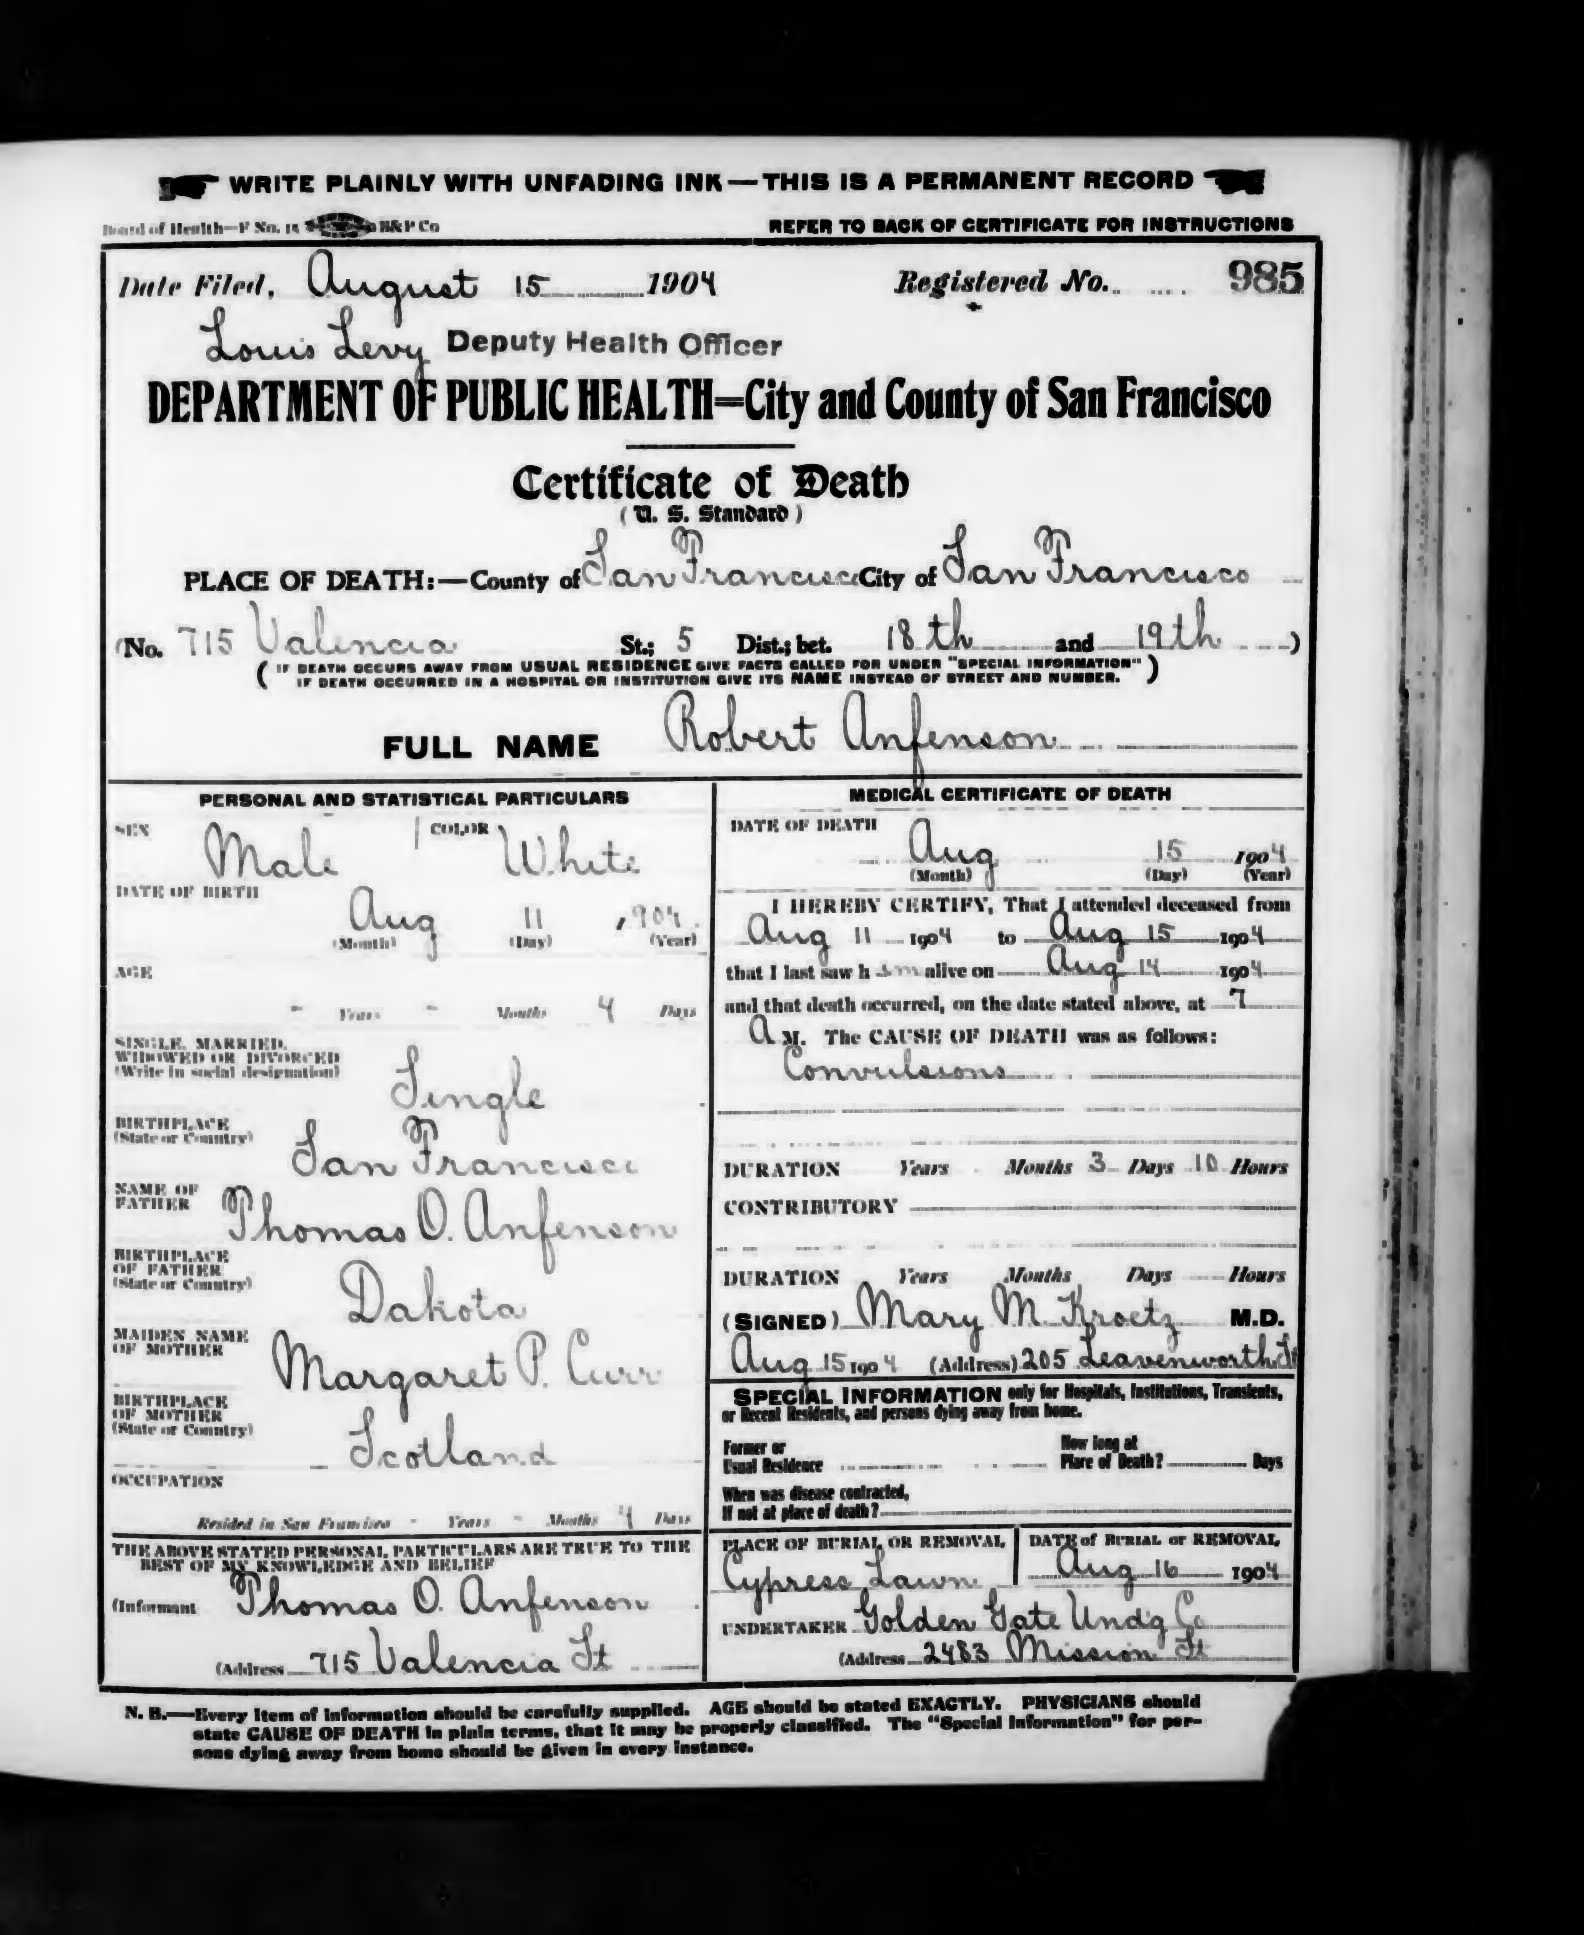 WRITE PLAINLY WITH UNFADING INK — THIS IS A PERMANENT RECORD
Board of Health—F No. 15 H&P Co REFER TO BACK OF CERTIFICATE FOR INSTRUCTIONS
Date Filed, August 15 1904 Registered No. 985
Louis Levy Deputy Health Officer
DEPARTMENT OF PUBLIC HEALTH=City and County of San Francisco
Certificate of Death
( U. S. Standard )
PLACE OF DEATH:—County of San Francisco City of San Francisco
(No. 715 Valencia St.; 5 Dist.; bet. 18th and 19th )
( IF DEATH OCCURS AWAY FROM USUAL RESIDENCE GIVE FACTS CALLED FOR UNDER "SPECIAL INFORMATION" )
IF DEATH OCCURRED IN A HOSPITAL OR INSTITUTION GIVE ITS NAME INSTEAD OF STREET AND NUMBER.
FULL NAME Robert Anfenson
PERSONAL AND STATISTICAL PARTICULARS
SEX Male COLOR White
DATE OF BIRTH
Aug 11 1904
(Month) (Day) (Year)
AGE
- Years - Months 4 Days
SINGLE, MARRIED,
WIDOWED OR DIVORCED
(Write in social designation) Single
BIRTHPLACE
(State or Country) San Francisco
NAME OF
FATHER Thomas O. Anfenson
BIRTHPLACE
OF FATHER
(State or Country) Dakota
MAIDEN NAME
OF MOTHER Margaret P. Curr
BIRTHPLACE
OF MOTHER
(State or Country) Scotland
OCCUPATION
Resided in San Francisco - Years - Months 4 Days
THE ABOVE STATED PERSONAL PARTICULARS ARE TRUE TO THE
BEST OF MY KNOWLEDGE AND BELIEF
(Informant Thomas O. Anfenson
(Address 715 Valencia St
MEDICAL CERTIFICATE OF DEATH
DATE OF DEATH
Aug 15 1904
(Month) (Day) (Year)
I HEREBY CERTIFY, That I attended deceased from
Aug 11 1904 to Aug 15 1904
that I last saw him alive on Aug 14 1904
and that death occurred, on the date stated above, at 7
A M. The CAUSE OF DEATH was as follows:
Convulsions
DURATION Years Months 3 Days 10 Hours
CONTRIBUTORY
DURATION Years Months Days Hours
(SIGNED) Mary M. Kroetz M.D.
Aug 15 1904 (Address) 205 Leavenworth St
SPECIAL INFORMATION only for Hospitals, Institutions, Transients,
or Recent Residents, and persons dying away from home.
Former or
Usual Residence
How long at
Place of Death? Days
When was disease contracted,
If not at place of death?
PLACE OF BURIAL OR REMOVAL
Cypress Lawn
DATE of BURIAL or REMOVAL
Aug 16 1904
UNDERTAKER Golden Gate Undg Co
(Address 2483 Mission St
N. B.—Every item of information should be carefully supplied. AGE should be stated EXACTLY. PHYSICIANS should
state CAUSE OF DEATH in plain terms, that it may be properly classified. The "Special Information" for per-
sons dying away from home should be given in every instance.